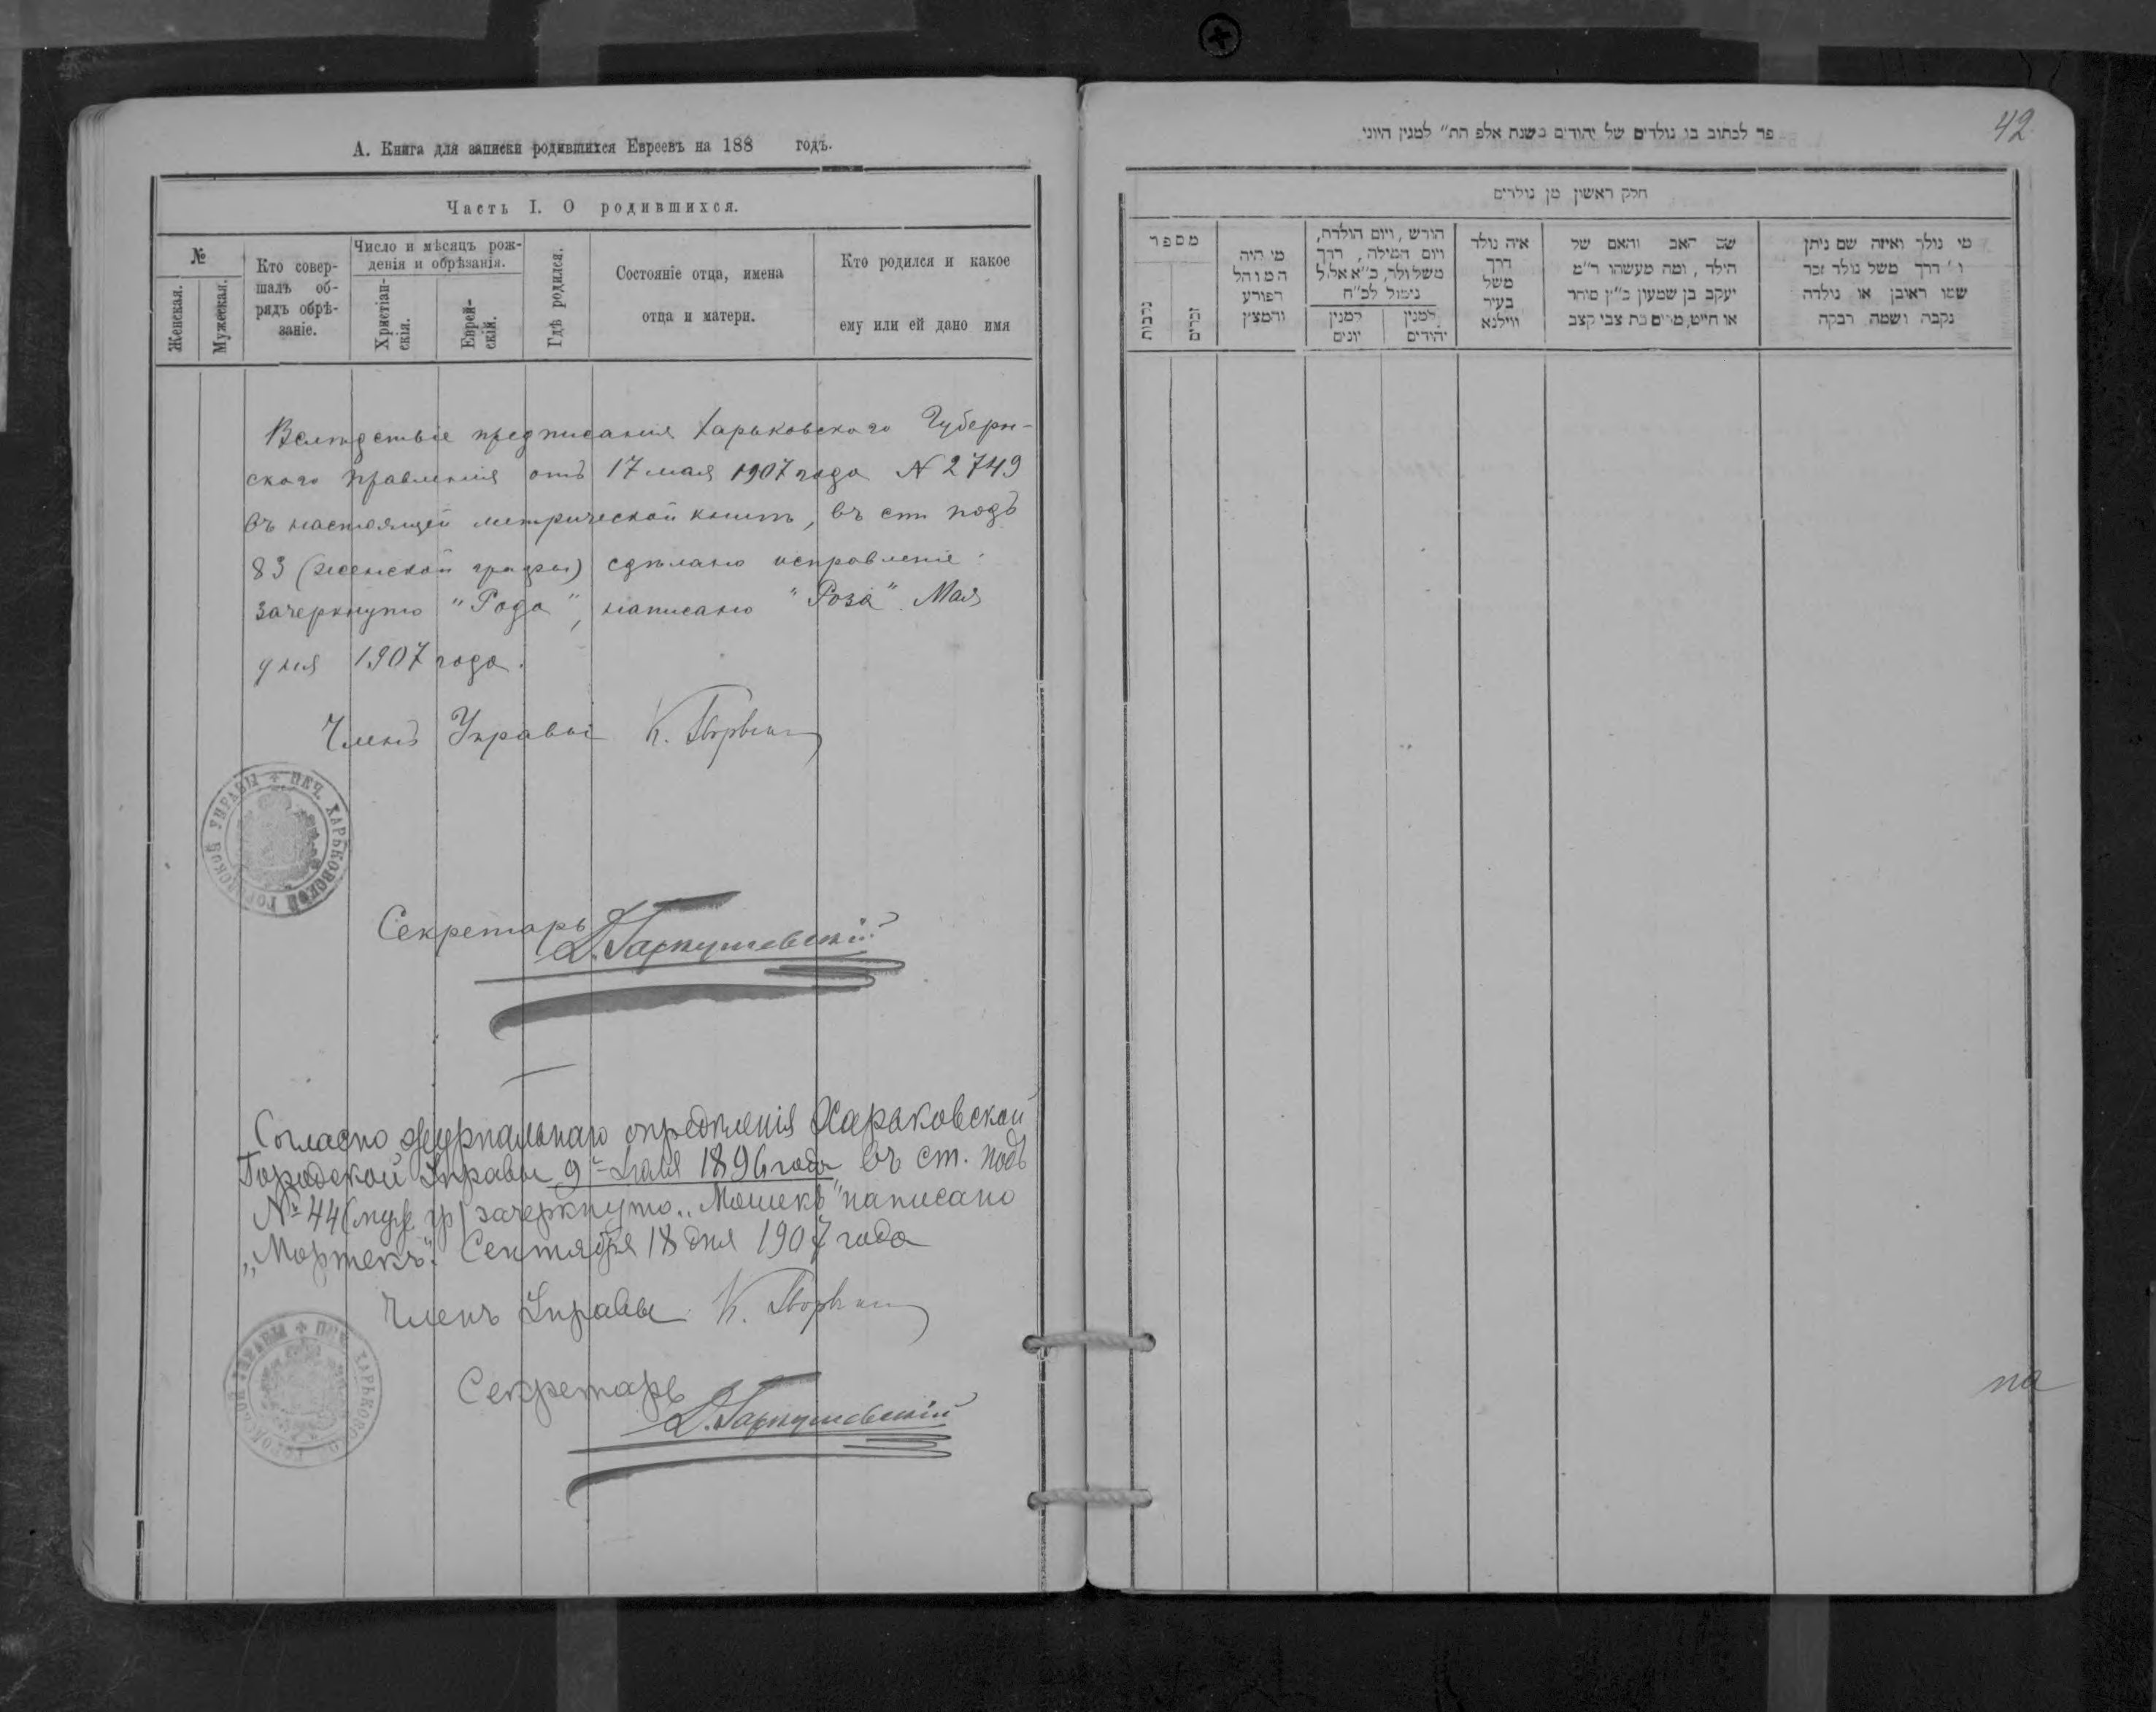 А. Книга для записки родившихся Евреевъ на 188 годъ.
Часть I. О родившихся.
№
Женская.
Мужеская.
Кто совер-
шалъ об-
рядъ обрѣ-
заніе.
Число и мѣсяцъ рож-
денія и обрѣзанія.
Христіан-
скія.
Еврей-
скій.
Гдѣ родился.
Состояніе отца, имена
отца и матери.
Кто родился и какое
ему или ей дано имя
Вслѣдствіе предписанія Харьковскаго Губерн-
скаго правленія отъ 17 мая 1907 года N 2749
въ настоящей метрической книгѣ, въ ст. подъ
83 (женской графы) сдѣлано исправленіе:
зачеркнуто "Рода", написано "Роза". Мая
дня 1907 года.
Членъ Управы К.
ПЕЧ. ХАРЬКОВСКОЙ ГОРОДСКОЙ УПРАВЫ
Секретарь
Согласно журнальнаго опредѣленія Харьковской
Городской Управы 9 1896 года въ ст. подъ
№ 44 (муж. гр) зачеркнуто „Мошекъ" написано
„Мортекъ". Сентября 18 дня 1907 года
Членъ Управы К.
ПЕЧ. ХАРЬКОВСКОЙ ГОРОДСКОЙ УПРАВЫ
Секретарь
42
פר לכתוב בו נולדים של יהודים בשנת אלפ הת״ למנין היוני
חלק ראשון מן נולדים
מספר
נקבות
זכרים
מי היה
המוהל
הפורע
והמצץ
חורש, ויום הולדת,
ויום המילה, דרך
משל ולד, כ״א אלול
נימול לכ״ח
למנין
יונים
למנין
יהודים
איה נולד
דרך
משל
בעיר
ווילנא
שם האב והאם של
הילד, ומה מעשהו ד״מ
יעקב בן שמעון כ״ץ סוחר
או חייט, מרים בת צבי קצב
מי נולד ואיזה שם ניתן
לו דרך משל נולד זכר
שמו ראובן או נולדה
נקבה ושמה רבקה
на